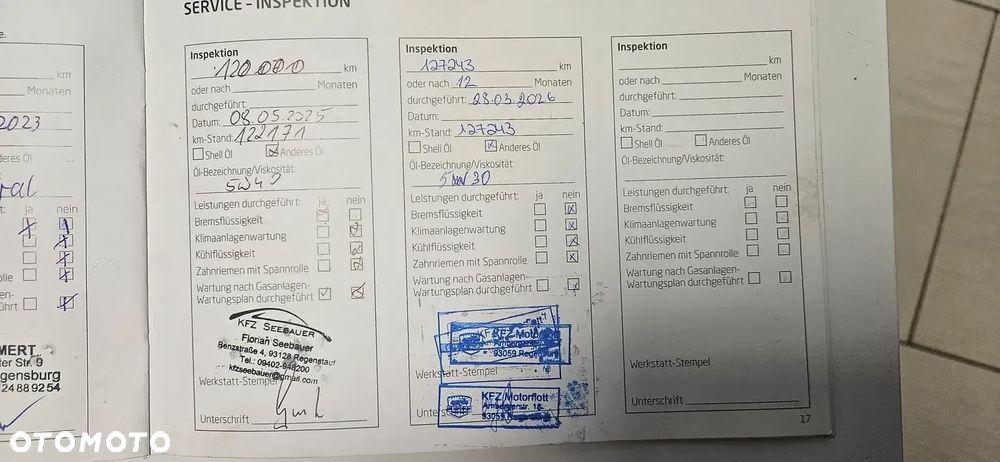 e.
km
Monaten
2023
deres Öl
ral
ja nein
MERT
ter Str. 9
gensburg
24889254
SERVICE - INSPEKTION
Inspektion
120.000 km
oder nach Monaten
durchgeführt:
Datum: 08.05.2025
km-Stand: 122171
Shell Öl Anderes Öl
Öl-Bezeichnung/Viskosität:
5W40
Leistungen durchgeführt: ja nein
Bremsflüssigkeit
Klimaanlagenwartung
Kühlflüssigkeit
Zahnriemen mit Spannrolle
Wartung nach Gasanlagen-
Wartungsplan durchgeführt
KFZ SEEBAUER
Florian Seebauer
Benzstraße 4, 93128 Regenstauf
Tel.: 09402-948200
kfzseebauer@gmail.com
Werkstatt-Stempel
Unterschrift
Inspektion
127243 km
oder nach 12 Monaten
durchgeführt: 28.03.2026
Datum:
km-Stand: 127243
Shell Öl Anderes Öl
Öl-Bezeichnung/Viskosität:
30
Leistungen durchgeführt: ja nein
Bremsflüssigkeit
Klimaanlagenwartung
Kühlflüssigkeit
Zahnriemen mit Spannrolle
Wartung nach Gasanlagen-
Wartungsplan durchgeführt
KFZ Motorflott
93059 Regensburg
Werkstatt-Stempel
KFZ Motorflott
93059
Inspektion
km
oder nach Monaten
durchgeführt:
Datum:
km-Stand:
Shell Öl Anderes Öl
Öl-Bezeichnung/Viskosität:
Leistungen durchgeführt: ja nein
Bremsflüssigkeit
Klimaanlagenwartung
Kühlflüssigkeit
Zahnriemen mit Spannrolle
Wartung nach Gasanlagen-
Wartungsplan durchgeführt
Werkstatt-Stempel
Unterschrift
17
OTOMOTO